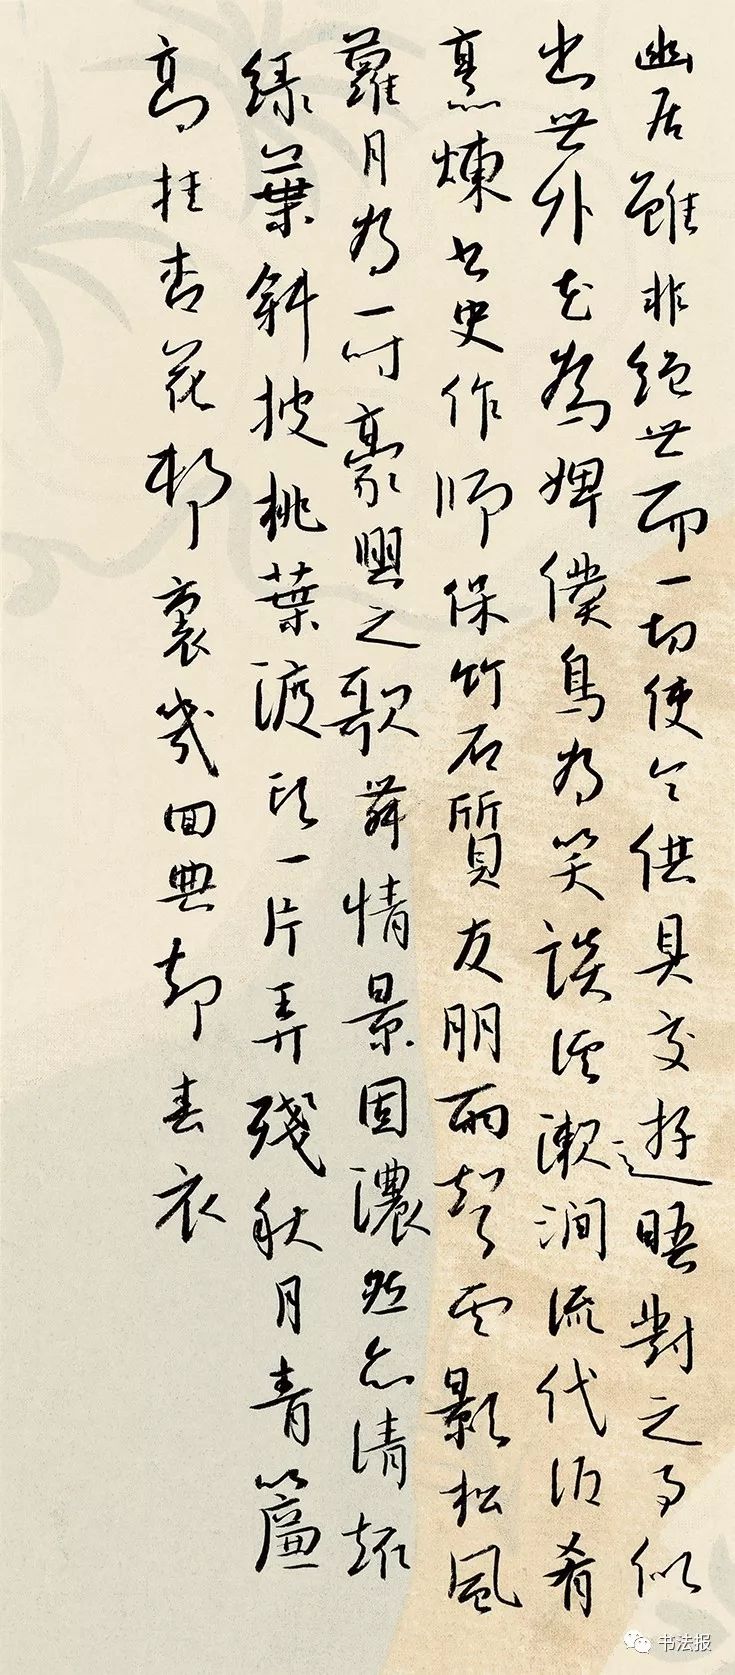 幽居雖非絕世而一切使令供具交遊晤對之事似
出世外花為婢僕鳥為笑談溪漱澗流代酒肴
烹煉書史作師保竹石質友朋雨聲雲影松風
蘿月為一時豪興之歌舞情景固濃然亦清趣
綠葉斜披桃葉渡頭一片弄殘秋月青簾
高挂杏花村裏幾回典却春衣
书法报